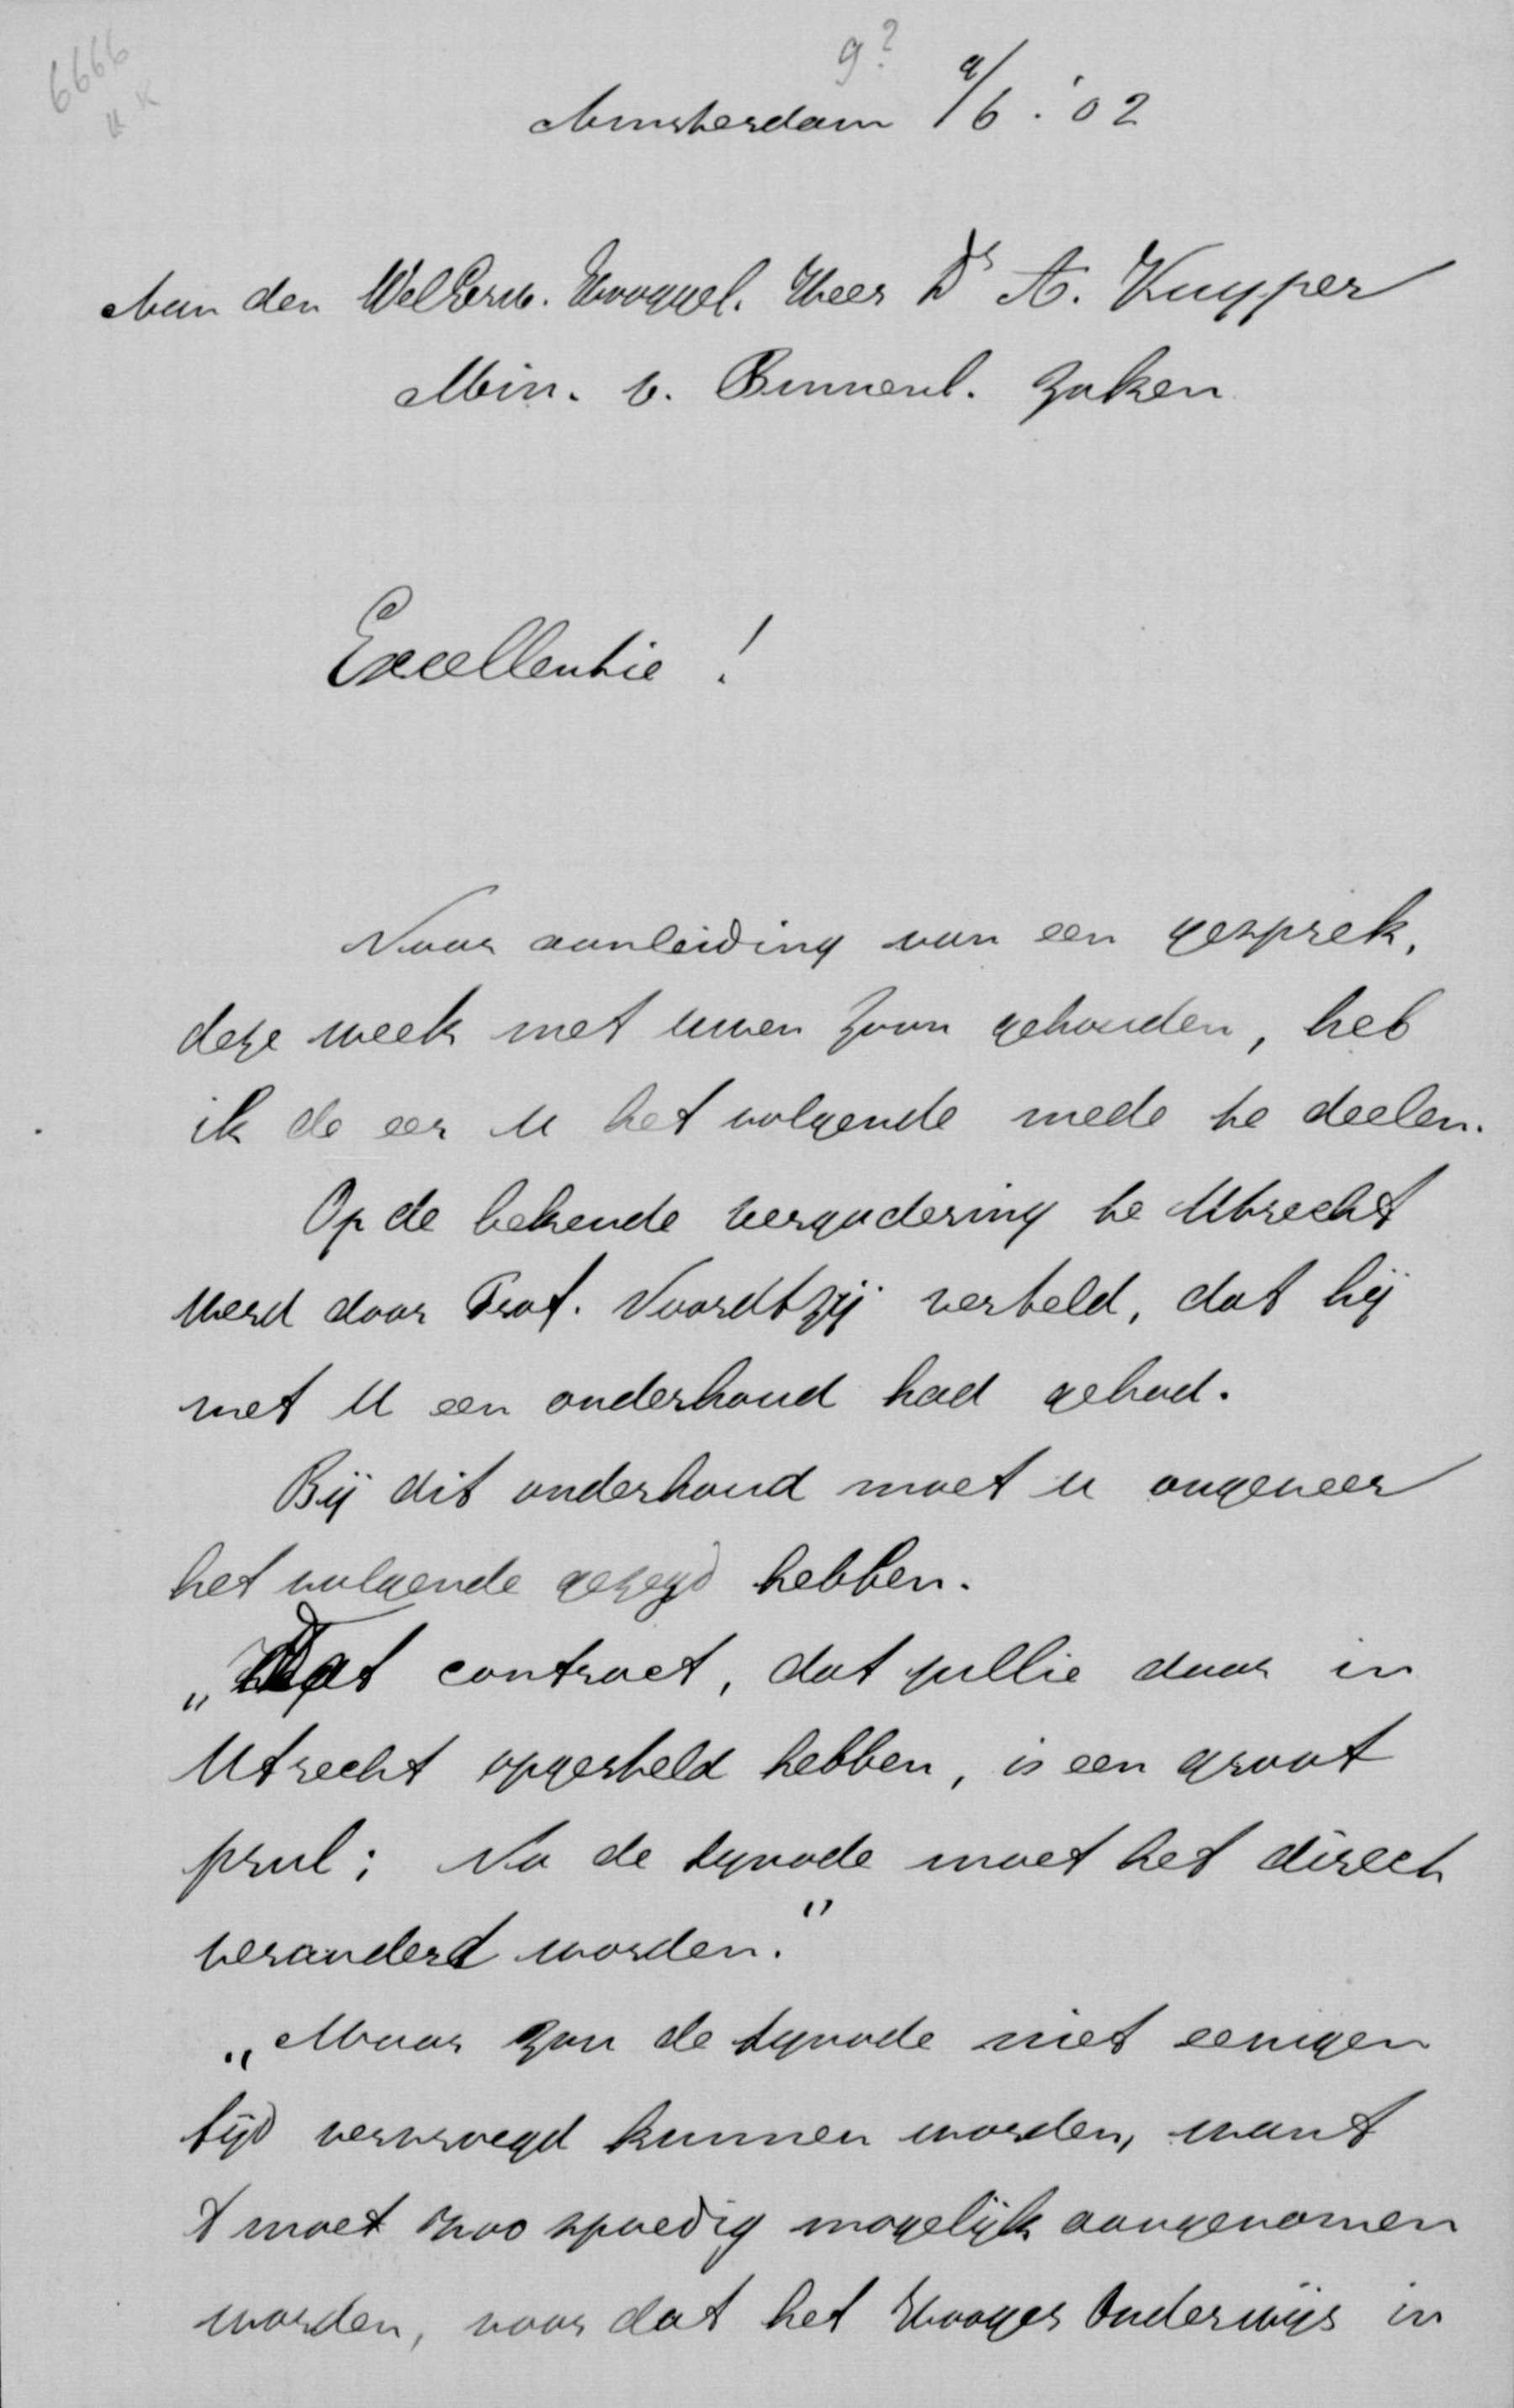 6666
g?
Amsterdam 9/6. '02
Aan den WelEerw. Hooggel. Heer Dr A. Kuyper
Min. v. Binnenl. Zaken
Excellentie!
Naar aanleiding van een gesprek,
deze week met uwen zoon gehouden, heb
ik de eer U het volgende mede te deelen.
Op de bekende vergadering te Utrecht
werd door Prof. Noordtzij verteld, dat hij
met U een onderhoud had gehad.
Bij dit onderhoud moet U ongeveer
het volgende gezegd hebben.
„Dat contract, dat jullie daar in
Utrecht opgesteld hebben, is een groot
prul; Na de synode moet het direct
veranderd worden."
„Maar zou de synode niet eenigen
tijd vervroegd kunnen worden, want
't moet zoo spoedig mogelijk aangenomen
worden, voor dat het Hooger Onderwijs in